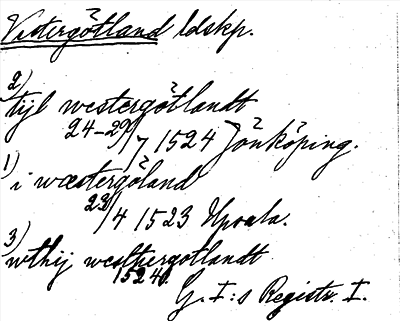 Västergötland ldskp.
2) tijl westergötlandt
24-29/7 1524 Jönköping.
1) i wæstergöland
23/4 1523 Upsala.
3) wthij westhergotlandt
1524.
G. I:s Registr. I.